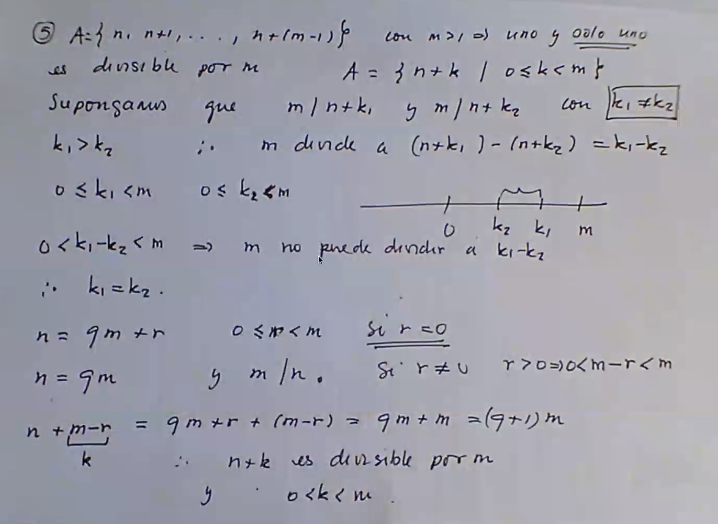 ⑤ A={ n, n+1, ..., n+(m-1)} con m>1 ⇒ uno y solo uno
es divisible por m A = { n+k / 0≤k<m }
Supongamos que m/n+k₁ y m/n+k₂ con k₁≠k₂
k₁>k₂ ∴ m divide a (n+k₁)-(n+k₂) = k₁-k₂
0≤k₁<m 0≤k₂<m
0 k₂ k₁ m
0<k₁-k₂<m ⇒ m no puede dividir a k₁-k₂
∴ k₁=k₂.
n = qm+r 0≤r<m Si r=0
n = qm y m/n. Si r≠0 r>0⇒0<m-r<m
n+m-r = qm+r+(m-r) = qm+m =(q+1)m
k ∴ n+k es divisible por m
y 0<k<m.